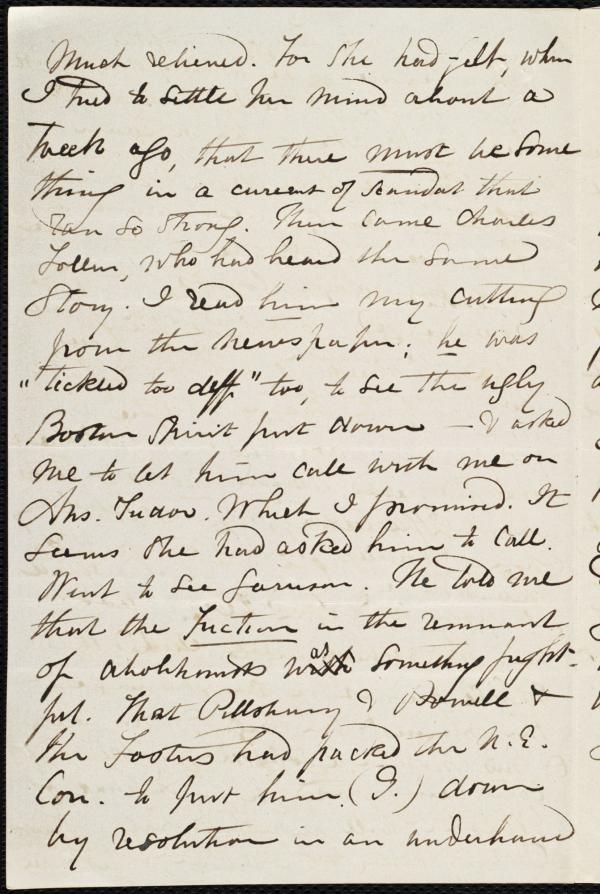 much relieved. For she had felt, when
I tried to settle her mind about a
week ago, that there must be some
thing in a current of scandal that
ran so strong. Then came Charles
Follen, who had heard the same
story. I read him my cutting
from the newspaper; he was
"tickled too deff" too, to see the ugly
Boston Spirit put down — & asked
me to let him call with me on
Mrs. Tudor. Which I promised. It
seems she had asked him to call.
Went to see Garrison. He told me
that the friction in the remnant
of abolitionists was something fright-
ful. That Pillsbury & Powell &
the Fosters had packed the N. E.
Con. to put him (G.) down
by resolution in an underhand